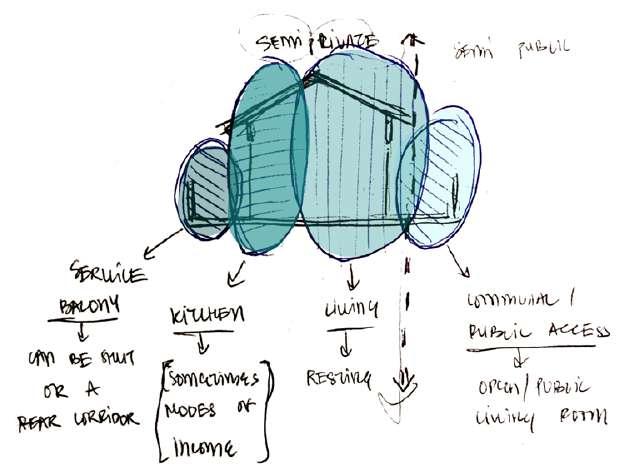 SEMI PRIVATE
SEMI PUBLIC
SERVICE
BALONY
CAN BE SHUT
OR A
REAR CORRIDOR
KITCHEN
[SOMETIMES
MODES OF
INCOME]
LIVING
RESTING
COMMUNAL /
PUBLIC ACCESS
OPEN/PUBLIC
LIVING ROOM